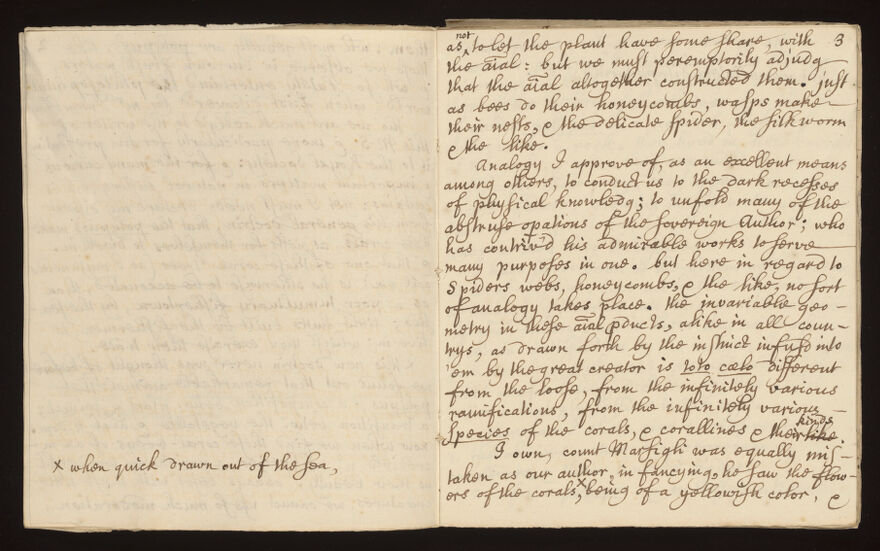 x when quick drawn out of the sea,
3
not
as, to let the plant have some share, with
the aĩal: but we must peremptorily adjudg
that the aĩal altogether constructed them. just
as bees do their honeycombs, wasps make
their nests, & the delicate spider, the silkworm
& the like.
Analogy I approve of, as an excellent means
among others, to conduct us to the dark recesses
of physical knowledg; to unfold many of the
abstruse opations of the sovereign Author; who
has contriv'd his admirable works to serve
many purposes in one. but here in regard to
Spiders webs, honeycombs, & the like, no sort
of analogy takes place. the invariable geo-
metry in these aĩal pducts, alike in all coun-
trys, as drawn forth by the instinct infusd into
'em by the great creator is toto cælo different
from the loose, from the infinitely various
ramifications, from the infinitely various
species of the corals, & corallines & their like.
kinds
I own, count Marsigli was equally mis-
taken as our author, in fancying, he saw the flow-
ers of the corals,x being of a yellowish color, &